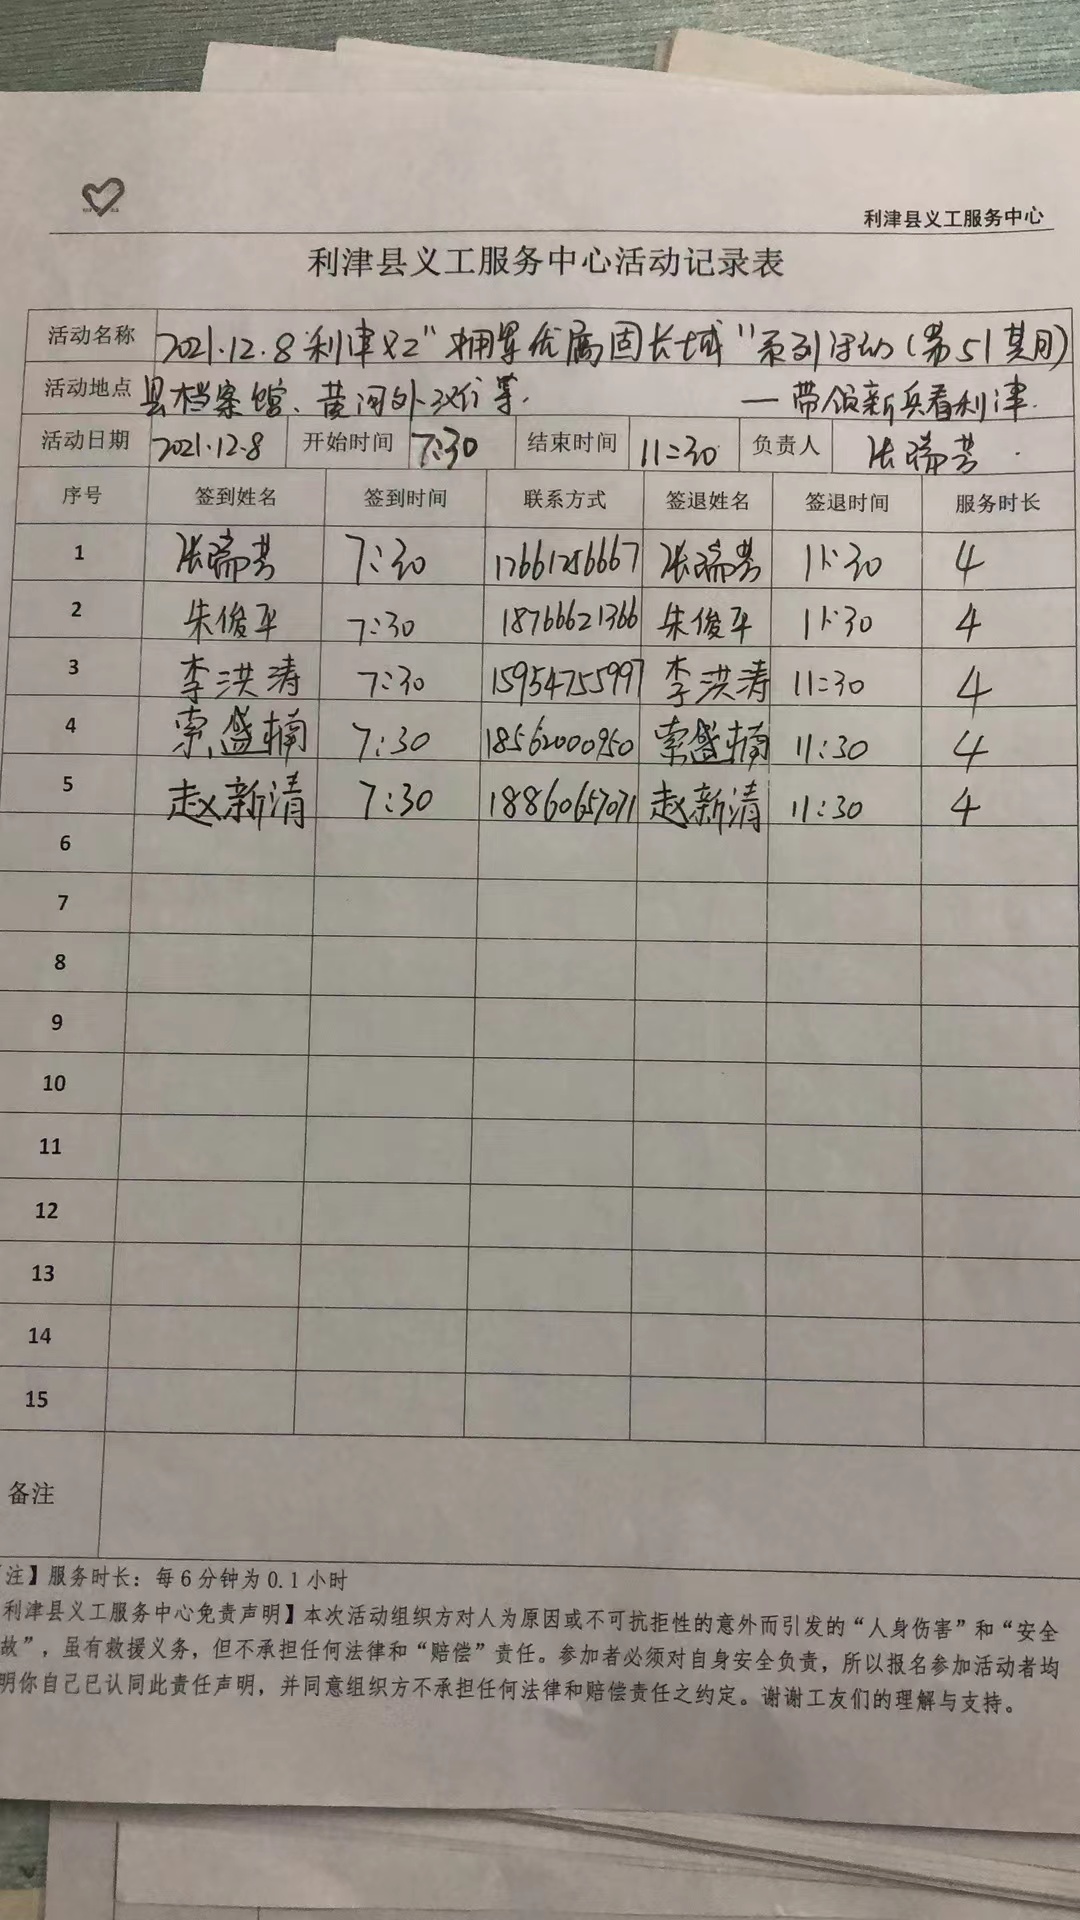 利津县义工服务中心
利津县义工服务中心活动记录表
活动名称 2021.12.8利津义工"拥军优属固长城"系列活动(第51期)
活动地点 县档案馆、黄河外滩等. —带领新兵看利津.
活动日期 2021.12.8 开始时间 7:30 结束时间 11:30 负责人 张瑞芳
序号 签到姓名 签到时间 联系方式 签退姓名 签退时间 服务时长
1 张瑞芳 7:30 17661256667 张瑞芳 11:30 4
2 朱俊平 7:30 18766621366 朱俊平 11:30 4
3 李洪涛 7:30 15954755997 李洪涛 11:30 4
4 索盛楠 7:30 18562000950 索盛楠 11:30 4
5 赵新清 7:30 18860657071 赵新清 11:30 4
6
7
8
9
10
11
12
13
14
15
备注
注】服务时长：每6分钟为0.1小时
利津县义工服务中心免责声明】本次活动组织方对人为原因或不可抗拒性的意外而引发的“人身伤害”和“安全
故”，虽有救援义务，但不承担任何法律和“赔偿”责任。参加者必须对自身安全负责，所以报名参加活动者均
明你自己已认同此责任声明，并同意组织方不承担任何法律和赔偿责任之约定。谢谢工友们的理解与支持。